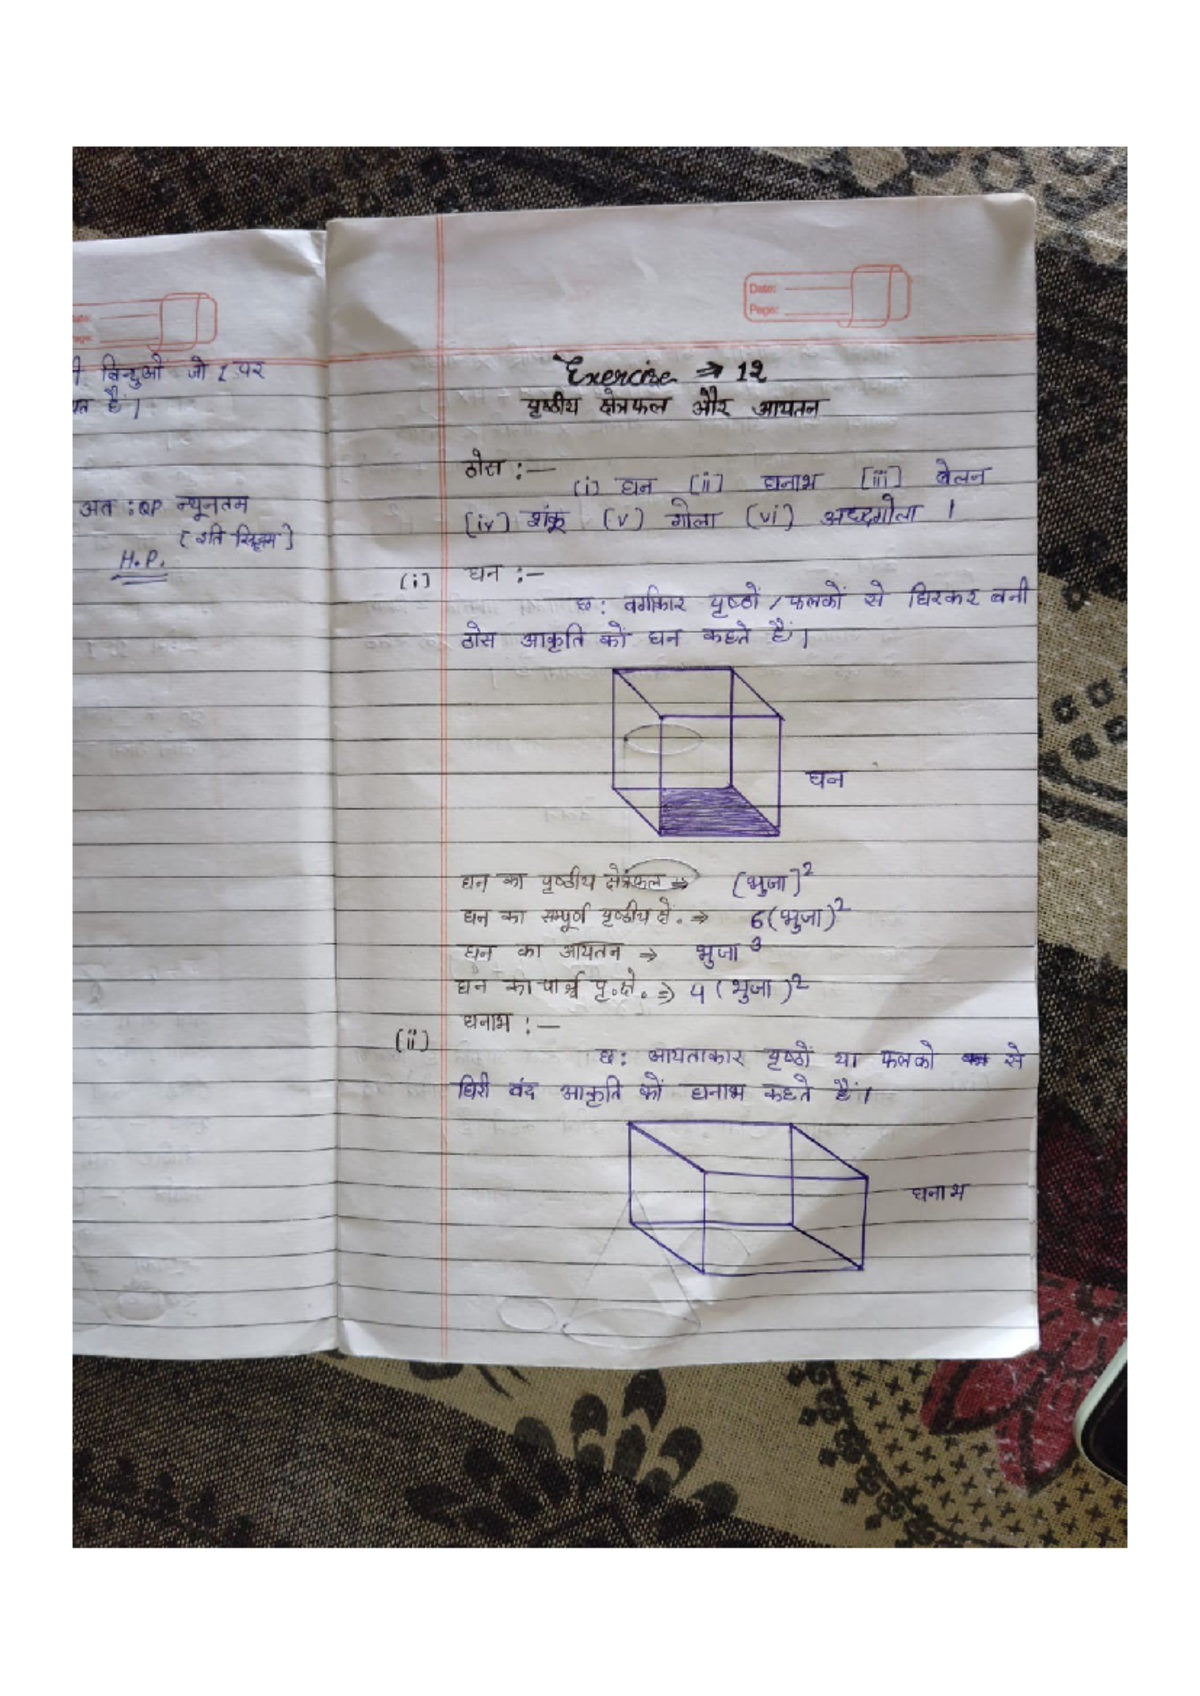 Date:
Page:
बिन्दुओं जो l पर
है।
अत : QP न्यूनतम
[ इति सिद्धम ]
H.P.
Date:
Page:
Exercise ⇒ 12
पृष्ठीय क्षेत्रफल और आयतन
ठोस :—
(i) घन (ii) घनाभ (iii) बेलन
(iv) शंकू (v) गोला (vi) अर्द्धगोला ।
(i) घन :—
छ: वर्गाकार पृष्ठों / फलकों से घिरकर बनी
ठोस आकृति कों घन कहते हैं।
घन
घन का पृष्ठीय क्षेत्रफल ⇒ (भुजा)²
घन का सम्पूर्ण पृष्ठीय क्षे. ⇒ 6(भुजा)²
घन का आयतन → भुजा ³
घन का पार्श्व पृ.क्षे. ⇒ 4 (भुजा)²
(ii) घनाभ :—
छ: आयताकार पृष्ठों या फलको से
घिरी बंद आकृति कों घनाभ कहते हैं।
घनाभ